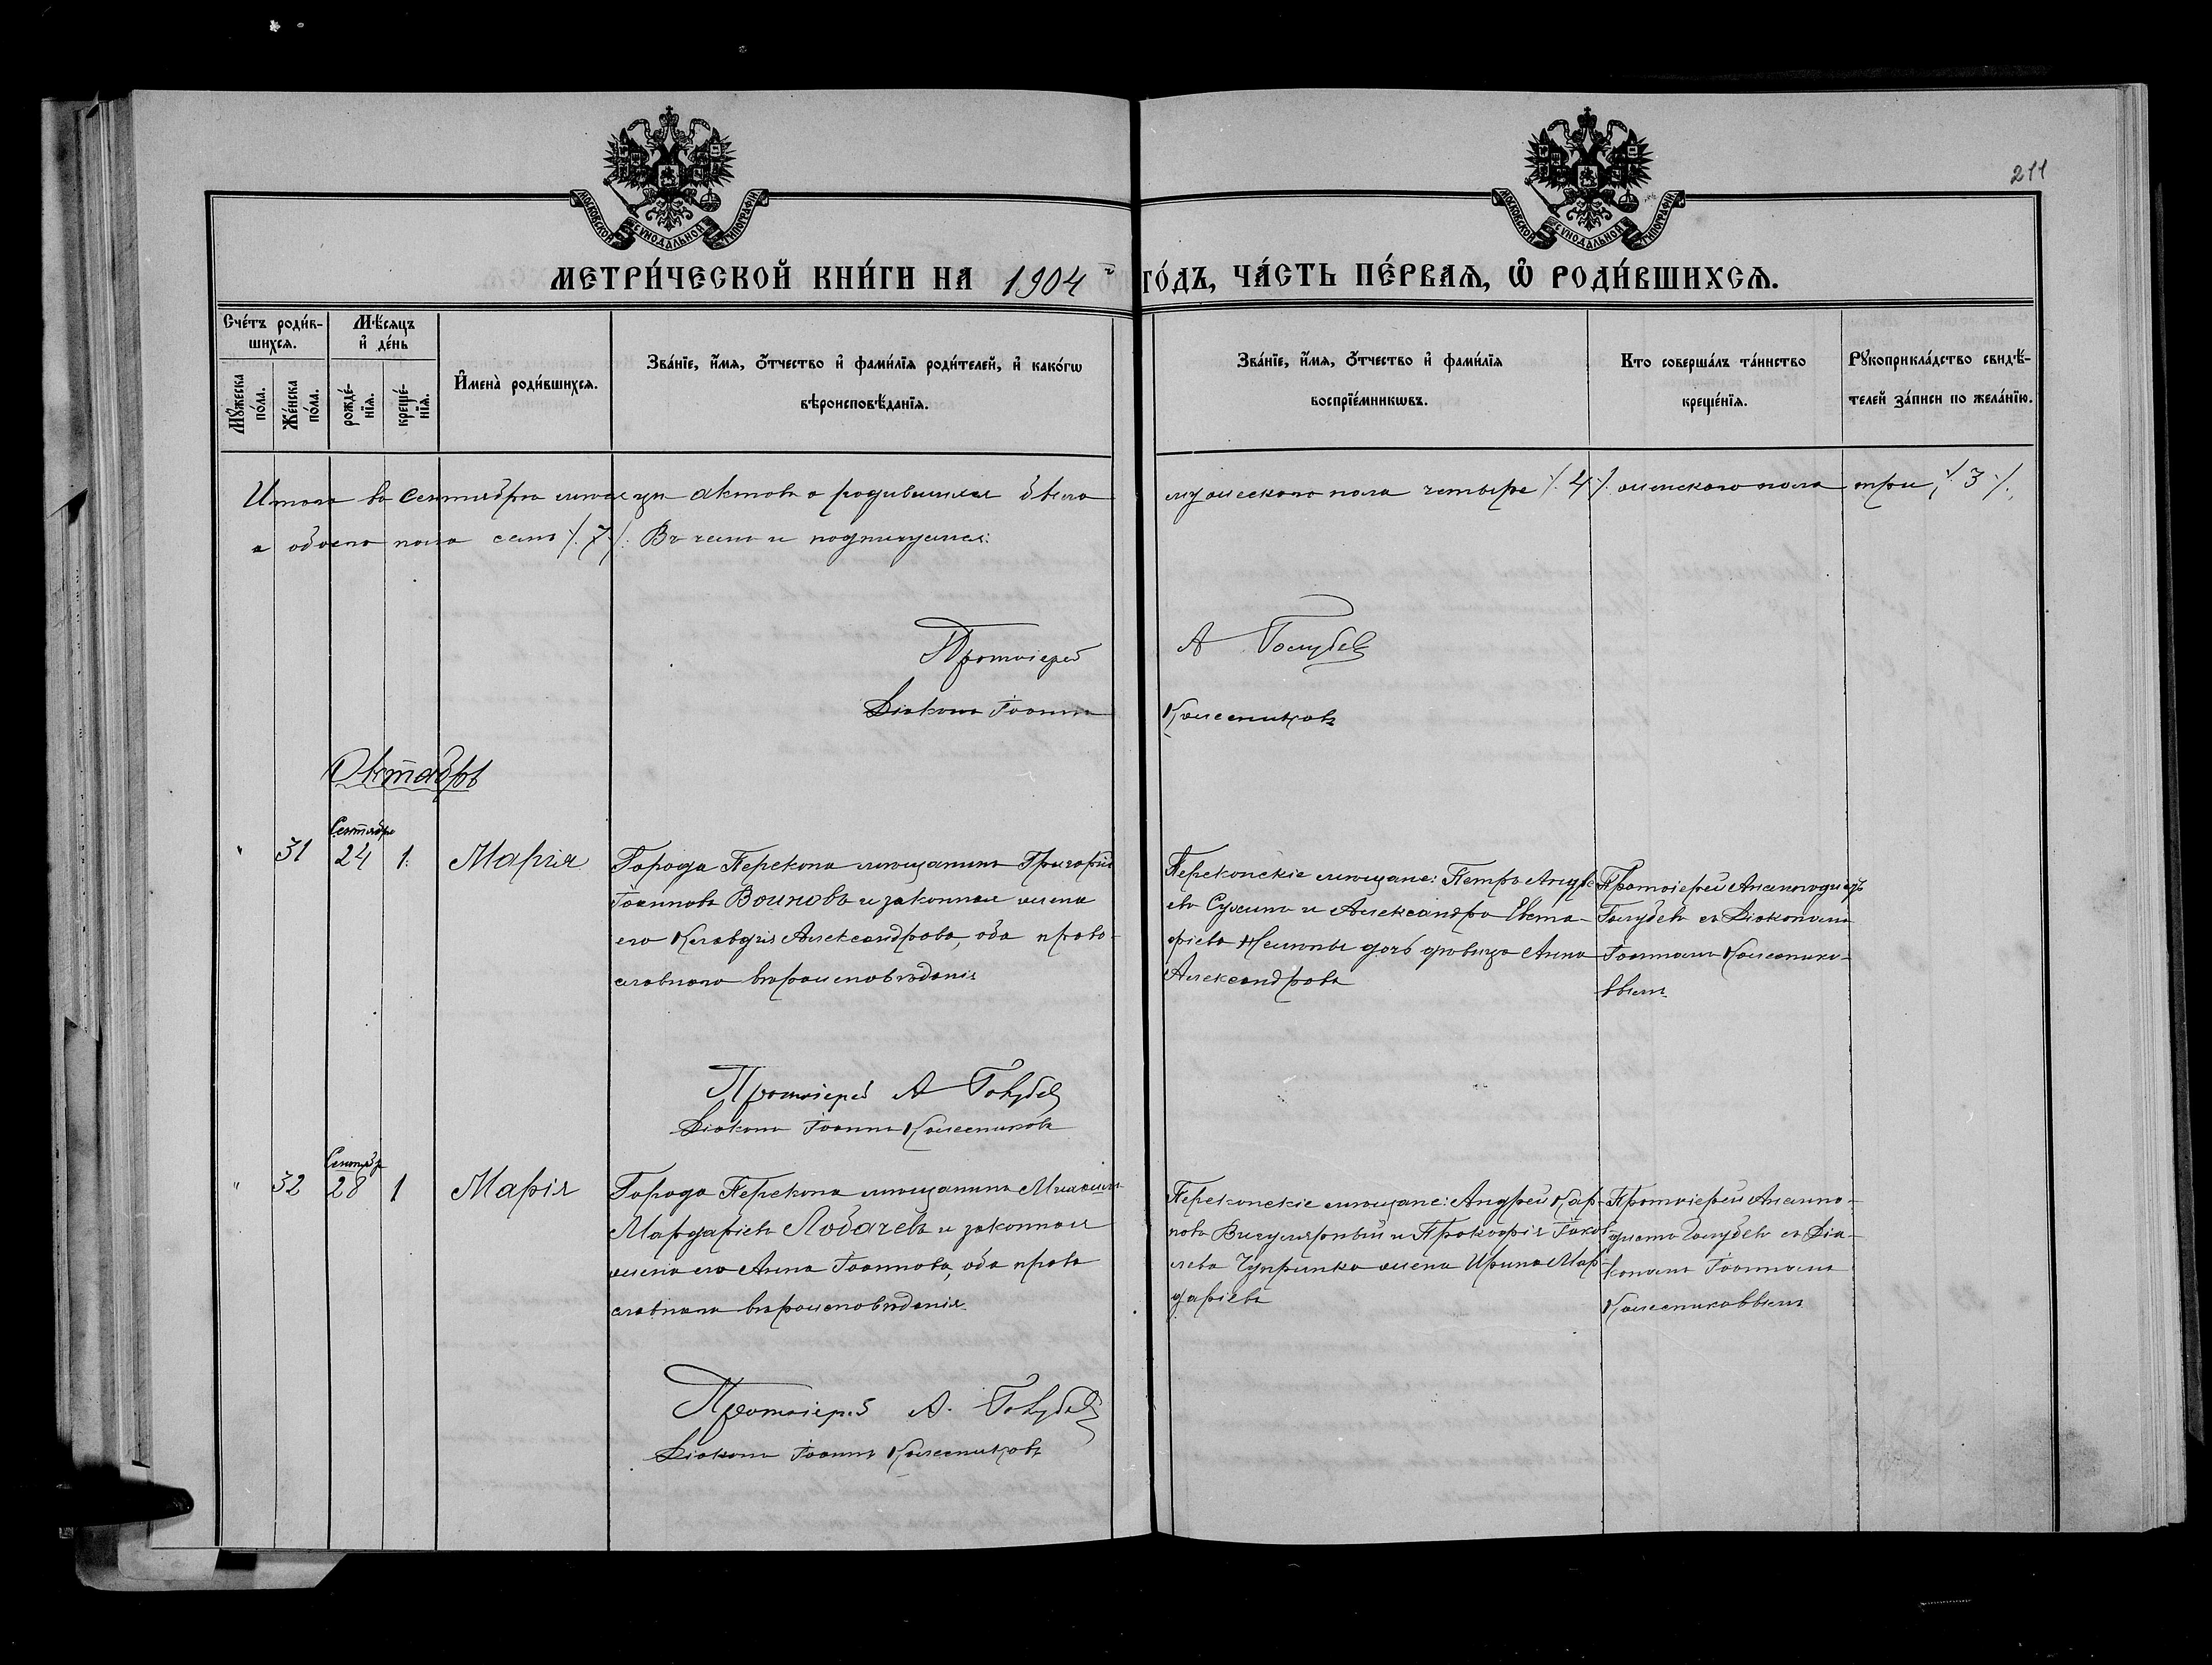 211
МОСКОВСКОЙ СѴНОДАЛЬНОЙ ТИПОГРАФІИ
МОСКОВСКОЙ СѴНОДАЛЬНОЙ ТИПОГРАФІИ
МЕТРИ́ЧЕСКОЙ КНИ́ГИ НА 1904 г ГО́ДЪ, ЧА́СТЬ ПЕ́РВАѦ, Ѡ҆ РОДИ́ВШИХСѦ.
Сче́тъ роди́в-
шихсѧ.
Мꙋ́жеска
по́ла.
Же́нска
по́ла.
Мѣ́сѧцъ
и҆ де́нь
рожде́-
нїѧ.
креще́-
нїѧ.
И҆мена̀ роди́вшихсѧ.
Зва́нїе, и҆́мѧ, ѻ҆́тчество и҆ фами́лїѧ роди́телей, и҆ како́гѡ
вѣроисповѣ́данїѧ.
Зва́нїе, и҆́мѧ, ѻ҆́тчество и҆ фами́лїѧ
воспрїе́мникѡвъ.
Кто соверша́лъ та́инство
креще́нїѧ.
Рꙋкоприкла́дство свидѣ́-
телей за́писи по жела́нїю.
Итого въ Сентябрѣ мѣсяцѣ актовъ о родившихся было мужескаго пола четыре /. 4 /. женскаго пола три /. 3 /.,
а обоего пола семь /. 7 /. Въ чемъ и подписуемся:
Протоіерей А Голубевъ
Діаконъ Іоаннъ Колесниковъ
Октябрь
" 31
Сентября
24 1.
Марія
Города Перекопа мѣщанинъ Григорій
Іоанновъ Воиновъ и законная жена
его Клавдія Александрова, оба право-
славнаго вѣроисповѣданія
Перекопскіе мѣщане: Петръ Андре
евъ и Александра Евста-
фіева дочь дѣвица Анна
Александрова
Протоіерей Аполлодоръ
Голубевъ съ Діакономъ
Іоанномъ Колеснико-
вымъ
Протоіерей А Голубевъ
Діаконъ Іоаннъ Колесниковъ
" 32
Сентябр
28 1
Марія
Города Перекопа мѣщанинъ Михаилъ
Мардаріевъ Лобачевъ и законная
жена его Анна Іоаннова, оба право
славнаго вѣроисповѣданія
Перекопскіе мѣщане: Андрей Кар-
повъ и Прокофія Іаков
лева Чупринко жена Ирина Мар
даріева
Протоіерей
Голубевъ съ Діа-
кономъ Іоанномъ
Колесниковымъ
Протоіерей А. Голубевъ
Діаконъ Іоаннъ Колесниковъ